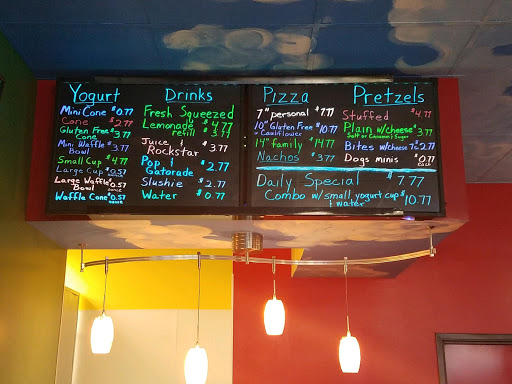 Yogurt
Mini Cone $0.77
Cone $2.77
Gluten Free $3.77
Cone
Mini Waffle $3.77
Bowl
Small Cup $4.77
Large Cup $0.57
ounce
Large Waffle $0.57
Bowl ounce
Waffle Cone $0.57
ounce
Drinks
Fresh Squeezed
Lemonade $4.77
refill $3.77
Juice & $3.77
Rockstar
Pop & $2.77
Gatorade
Slushie $2.77
Water $0.77
Pizza
7" personal $7.77
10" Gluten Free $10.77
Cauliflower
14" family $14.77
Nachos $3.77
Pretzels
Stuffed $4.77
Plain w/cheese $3.77
Salt or Cinnamon & Sugar
Bites w/cheese 7oz $2.77
Dogs minis $0.77
each
Daily Special $7.77
Combo w/small yogurt cup $10.77
& water